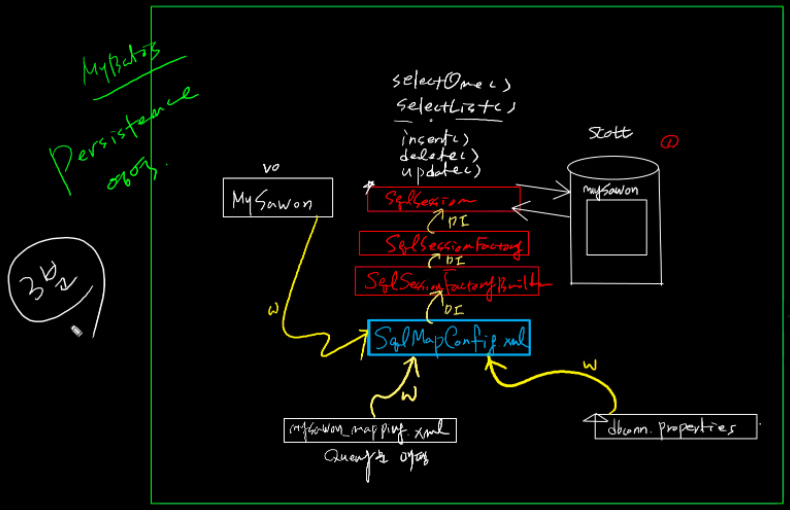 MyBatis
Persistence
영역.
selectOne()
selectList()
insert()
delete()
update()
Scott
①
VO
MySawon
mySawon
SqlSession
DI
SqlSessionFactory
DI
SqlSessionFactoryBuilder
DI
W
SqlMapConfig.xml
W
W
mySawon_mapping.xml
dbconn.properties